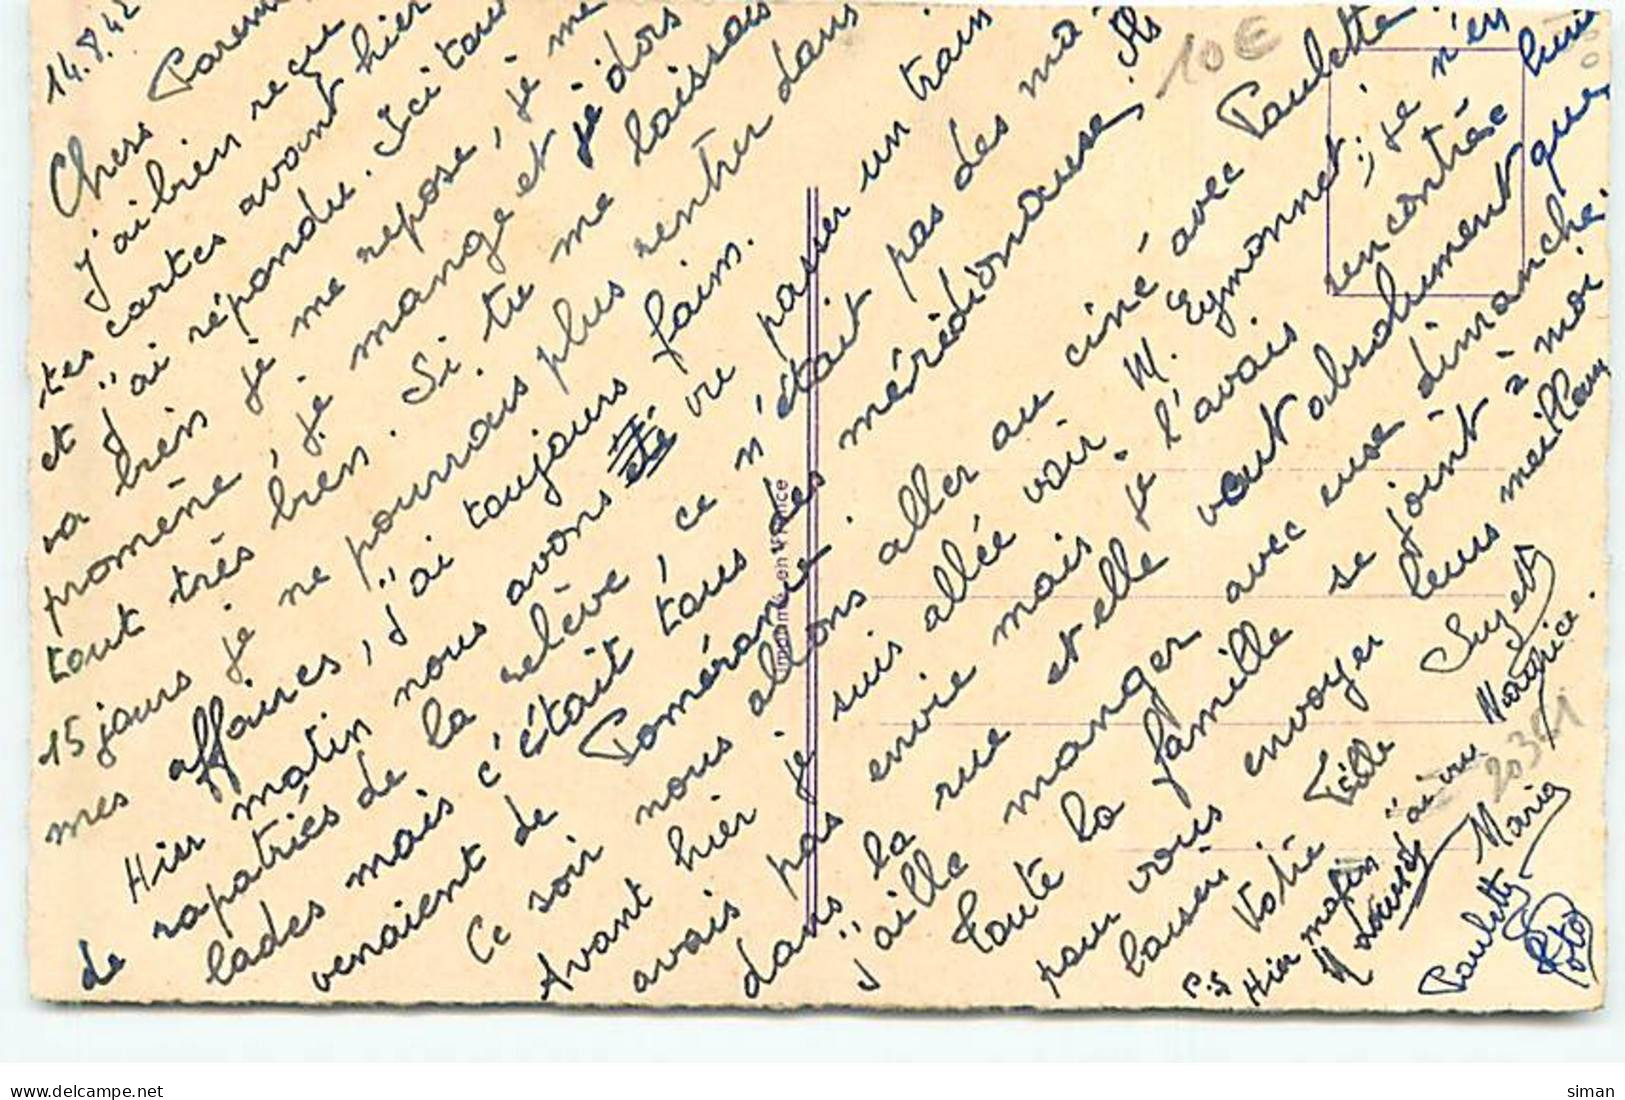 14.8.42
Chers Parents,
J'ai bien reçu
tes cartes avant hier
et j'ai répondu. Ici tout
va bien je me repose, je me
promène, je mange et je dors
tout très bien. Si tu me laissais
15 jours je ne pourrais plus rentrer dans
mes affaires, j'ai toujours faim.
Hier matin nous avons vu passer un train
de rapatriés de la relève, ce n'était pas des ma-
lades mais c'était tous des mérédionause. Ils
venaient de Poméranie.
Ce soir nous allons aller au ciné avec Paulette.
Avant hier je suis allée voir M. Eymonnet ; je n'en
avais pas envie mais je l'avais rencontrée
dans la rue et elle veut absolument que
j'aille manger avec euse dimanche.
Toute la famille se joint à moi
pour vous envoyer leurs meilleurs
baisers. Votre Fille Suzette
P.S Hier matin j'ai vu
Maurice.
Marie
Paulette
Toto
10€
20361
Imprimé en France
https://www.delcampe.net
siman